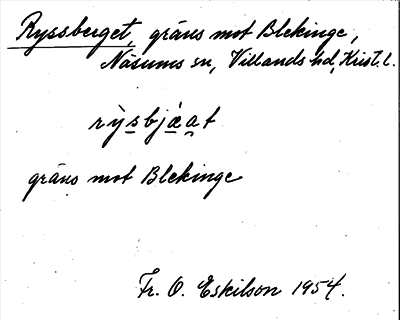 Ryssberget, gräns mot Blekinge,
Näsums sn, Villands hd, Krist. l.
rỳsbjǽat
gräns mot Blekinge
Fr. O. Eskilson 1954.